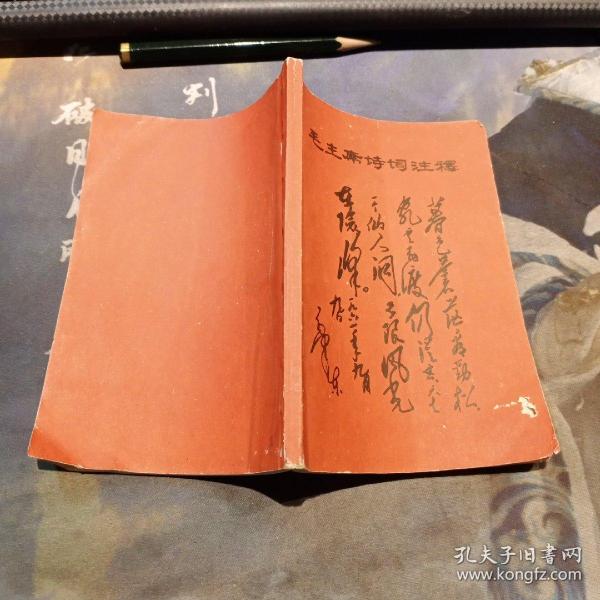 毛主席诗词注释
暮色蒼茫看劲松
乱云飞渡仍從容天生
一个仙人洞无限風光
在险峰。
一九六一年九月
九日
毛泽东
孔夫子旧书网
www.kongfz.com